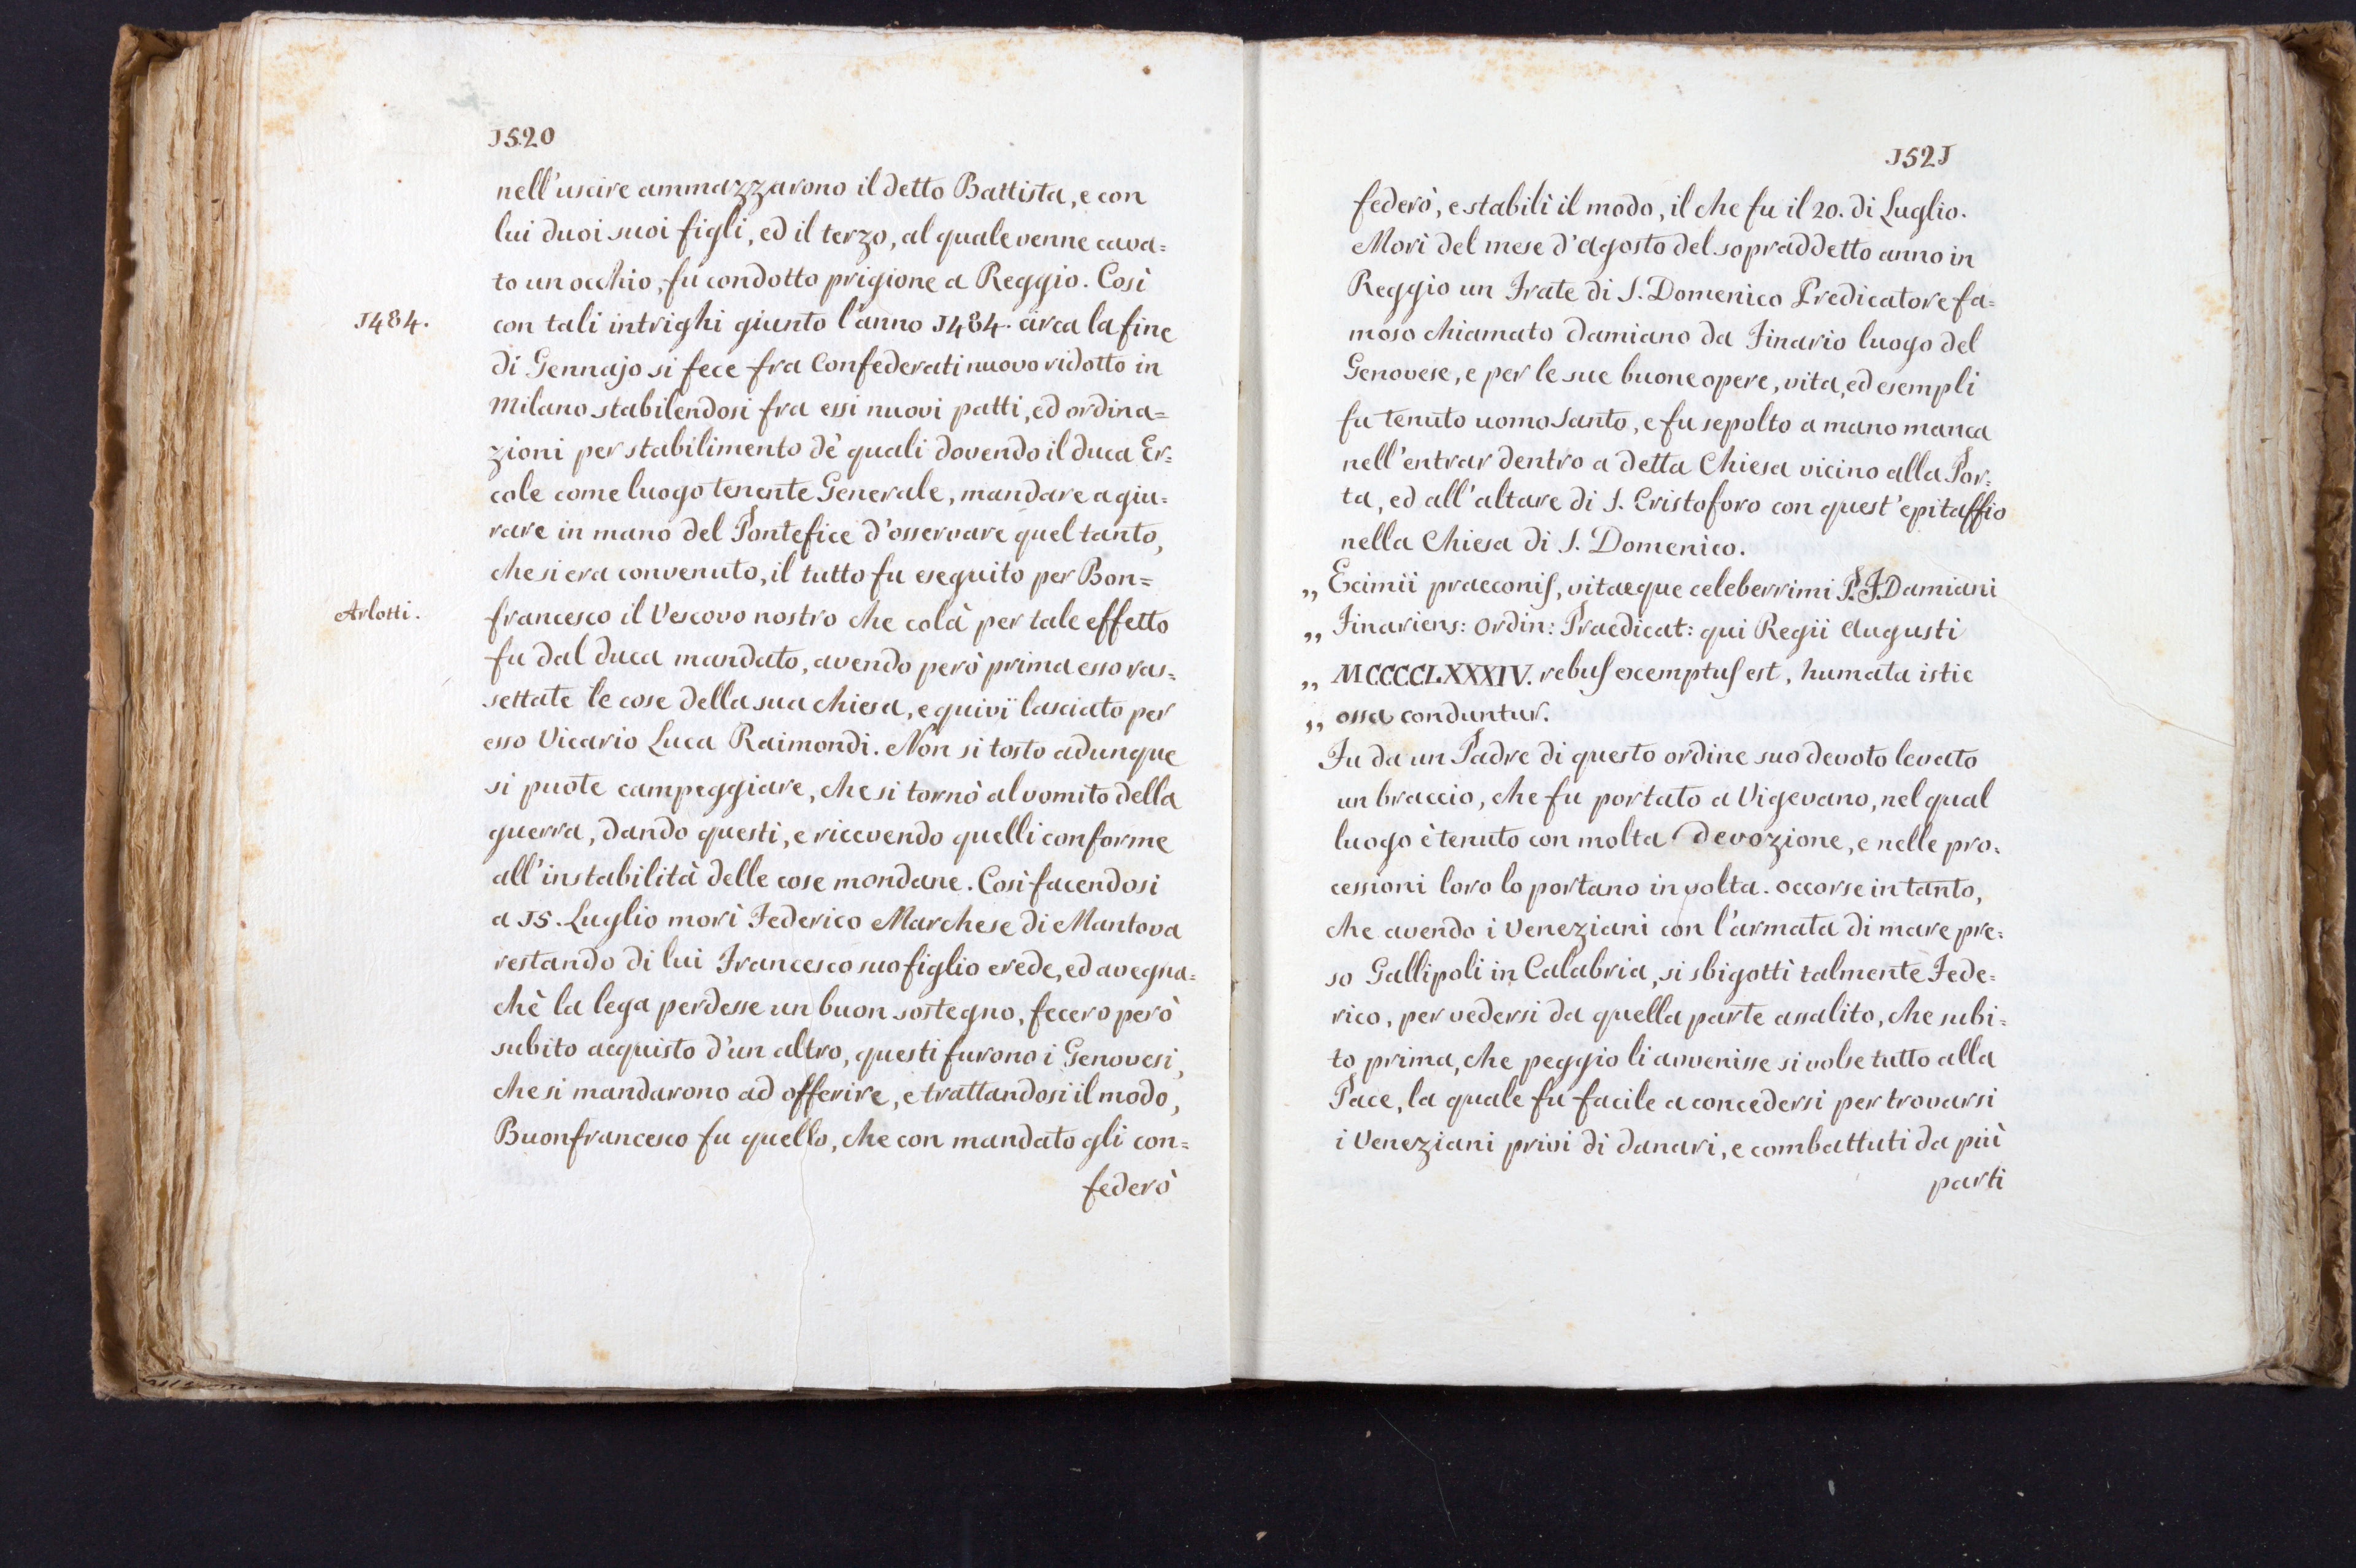 1520
nell'uscire ammazzarono il detto Battista, e con
lui duoi suoi figli, ed il terzo, al quale venne cava=
to un occhio, fu condotto prigione a Reggio. Così
1484.
con tali intrighi giunto l'anno 1484. circa la fine
di Gennajo si fece fra Confederati nuovo ridotto in
Milano stabilendosi fra essi nuovi patti, ed ordina=
zioni per stabilimento dè quali dovendo il duca Er=
cole come luogo tenente Generale, mandare a giu=
rare in mano del Pontefice d'osservare quel tanto,
che si era convenuto, il tutto fu eseguito per Bon=
Arlotti.
francesco il Vescovo nostro che colà per tale effetto
fu dal duca mandato, avendo però prima esso ras=
settate le cose della sua chiesa, e quivi lasciato per
esso Vicario Luca Raimondi. Non si tosto adunque
si puote campeggiare, che si tornò al vomito della
guerra, dando questi, e ricevendo quelli conforme
all'instabilità delle cose mondane. Così facendosi
a 15. Luglio morì Federico Marchese di Mantova
restando di lui Francesco suo figlio erede, ed avegna=
chè la lega perdesse un buon sostegno, fecero però
subito acquisto d'un altro, questi furono i Genovesi,
che si mandarono ad offerire, e trattandosi il modo,
Buonfrancesco fu quello, che con mandato gli con=
federò
1521
federò, e stabilì il modo, il che fu il 20. di Luglio.
Morì del mese d'agosto del sopraddetto anno in
Reggio un Frate di S. Domenico Predicatore fa=
moso chiamato Damiano da Finario luogo del
Genovese, e per le sue buone opere, vita, ed esempli
fu tenuto uomo Santo, e fu sepolto a mano manca
nell'entrar dentro a detta Chiesa vicino alla Por=
ta, ed all'altare di S. Cristoforo con quest'epitaffio
nella Chiesa di S. Domenico.
„ Eximii praeconis, vitaeque celeberrimi P. F. Damiani
„ Finariens: Ordin: Praedicat: qui Regii Augusti
„ MCCCCLXXXIV. rebus exemptus est, humata istic
„ ossa conduntur.
Fu da un Padre di questo ordine suo devoto levato
un braccio, che fu portato a Vigevano, nel qual
luogo è tenuto con molta devozione, e nelle pro=
cessioni loro lo portano in volta. occorse in tanto,
che avendo i Veneziani con l'armata di mare pre=
so Gallipoli in Calabria, si sbigottì talmente Fede=
rico, per vedersi da quella parte assalito, che subi=
to prima, che peggio li avvenisse si volse tutto alla
Pace, la quale fu facile a concedersi per trovarsi
i Veneziani privi di danari, e combattuti da più
parti